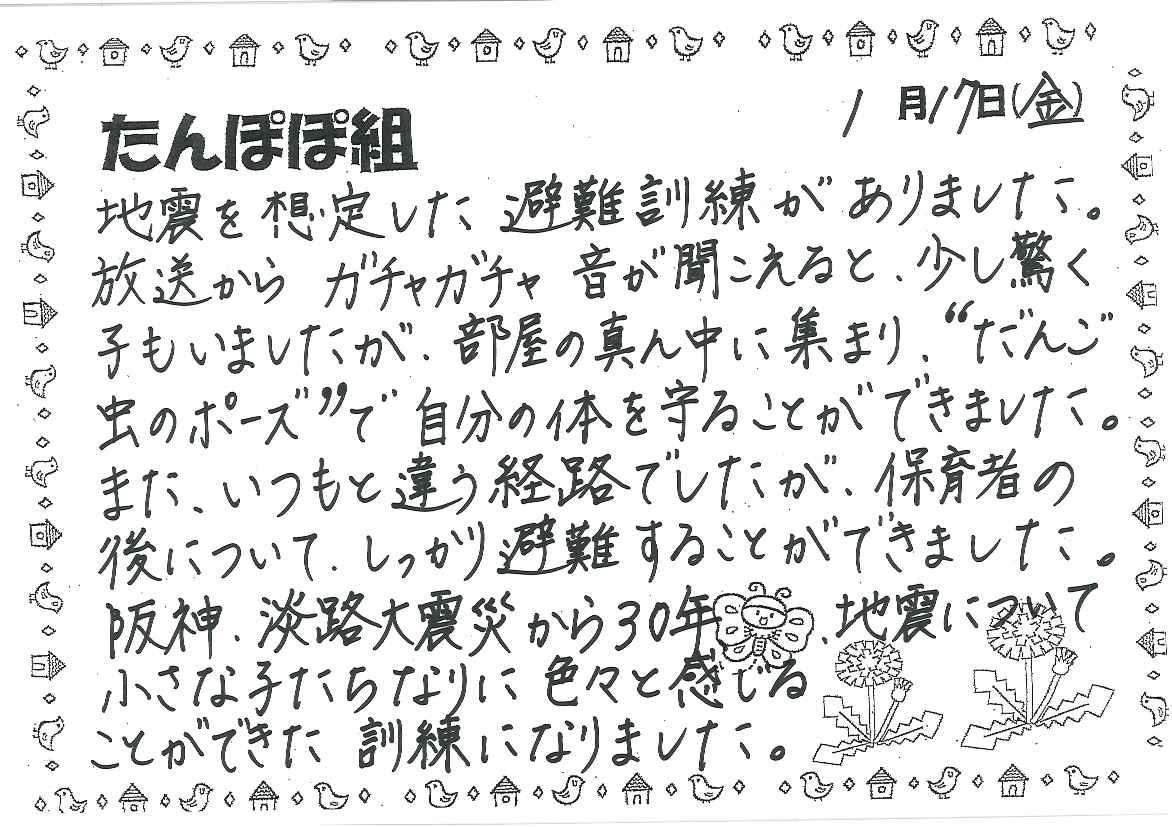 1月17日(金)
たんぽぽ組
地震を想定した 避難訓練がありました。
放送から ガチャガチャ 音が聞こえると、少し驚く
子もいましたが、部屋の真ん中に集まり、“だんご
虫のポーズ”で 自分の体を守ることができました。
また、いつもと違う経路でしたが、保育者の
後について、しっかり避難することができました。
阪神、淡路大震災から30年、地震について
小さな子たちなりに 色々と感じる
ことができた 訓練になりました。